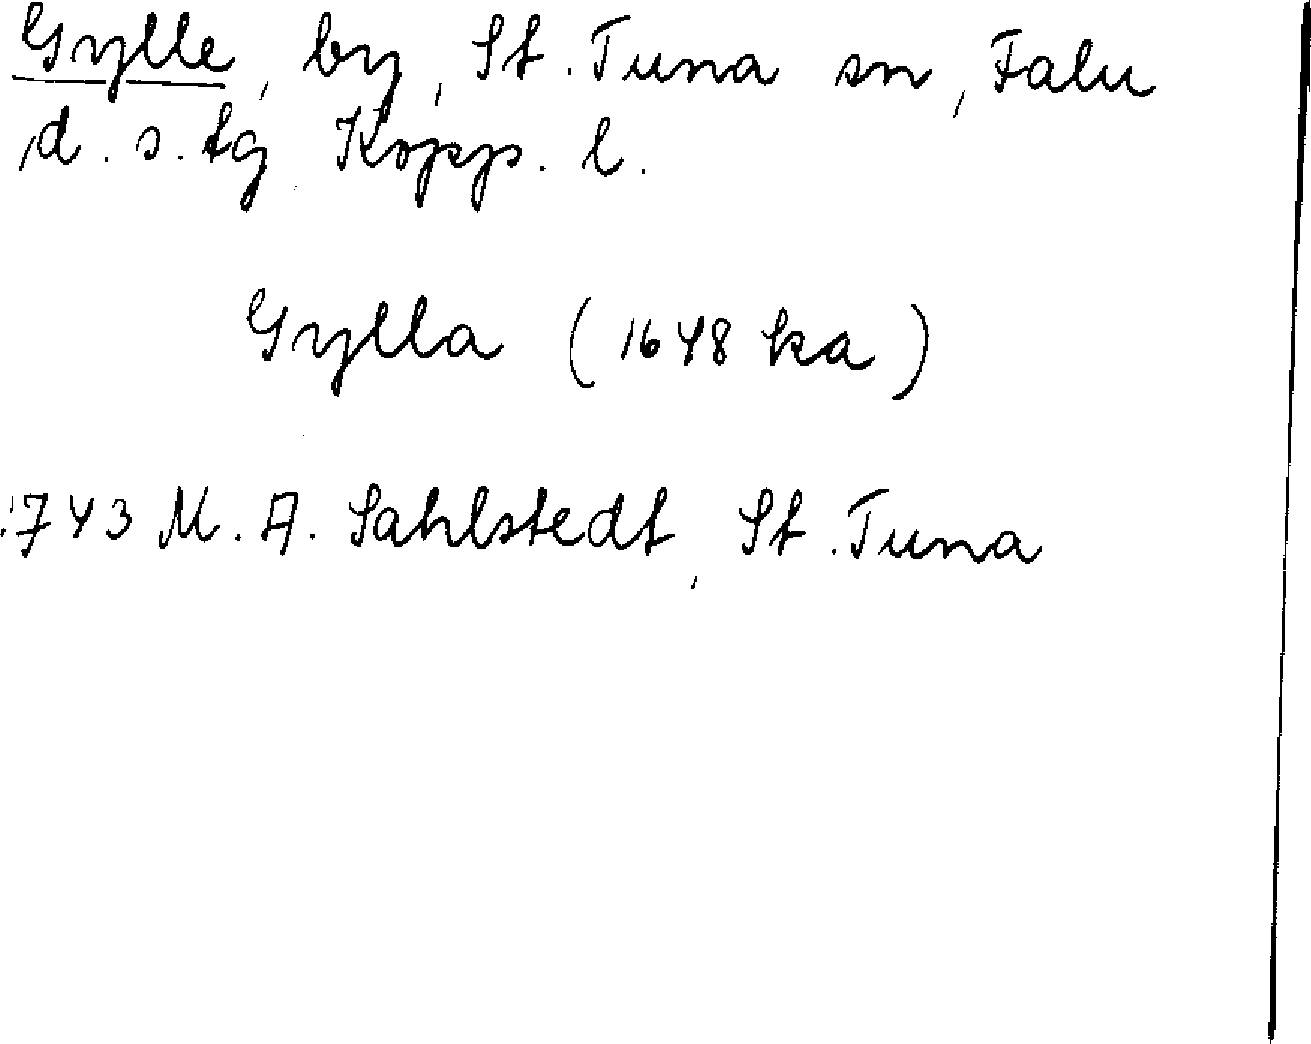 Gylle, by, St. Tuna sn, Falu
d. s. tg Kopp. l.
Gylla (1648 ka)
1743 M. A. Sahlstedt, St. Tuna